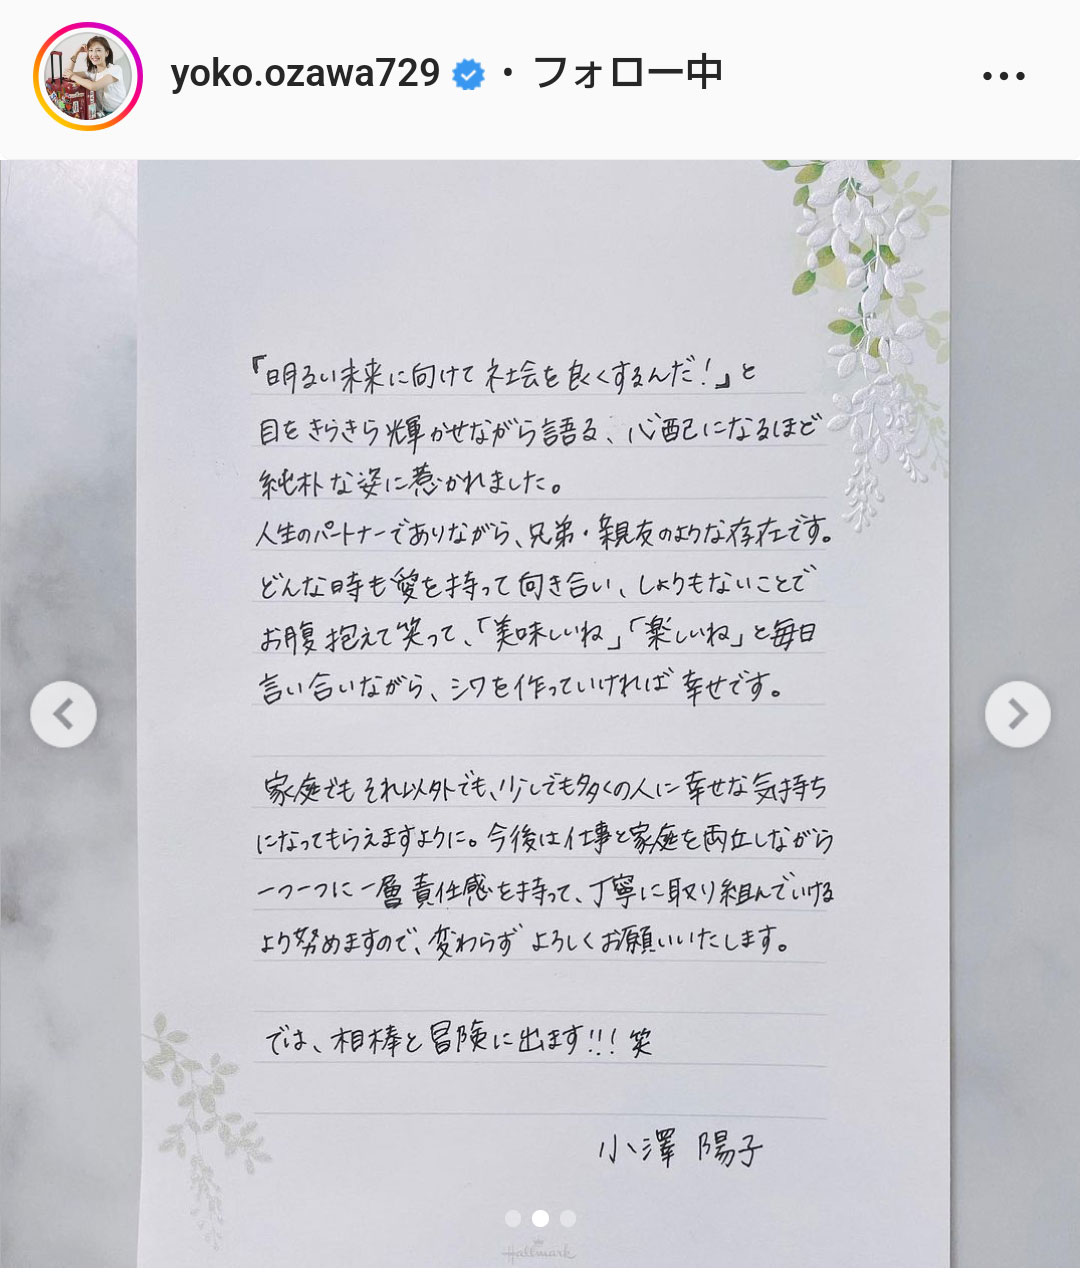 yoko.ozawa729 • フォロー中
『明るい未来に向けて社会を良くするんだ！』と
目をきらきら輝かせながら語る、心配になるほど
純朴な姿に惹かれました。
人生のパートナーでありながら、兄弟・親友のような存在です。
どんな時も愛を持って向き合い、しょうもないことで
お腹抱えて笑って、「美味しいね」「楽しいね」と毎日
言い合いながら、シワを作っていければ幸せです。
家庭でもそれ以外でも、少しでも多くの人に幸せな気持ち
になってもらえますように。今後は仕事と家庭を両立しながら
一つ一つに一層責任感を持って、丁寧に取り組んでいける
よう努めますので、変わらずよろしくお願いいたします。
では、相棒と冒険に出ます!!! 笑
小澤 陽子
Hallmark